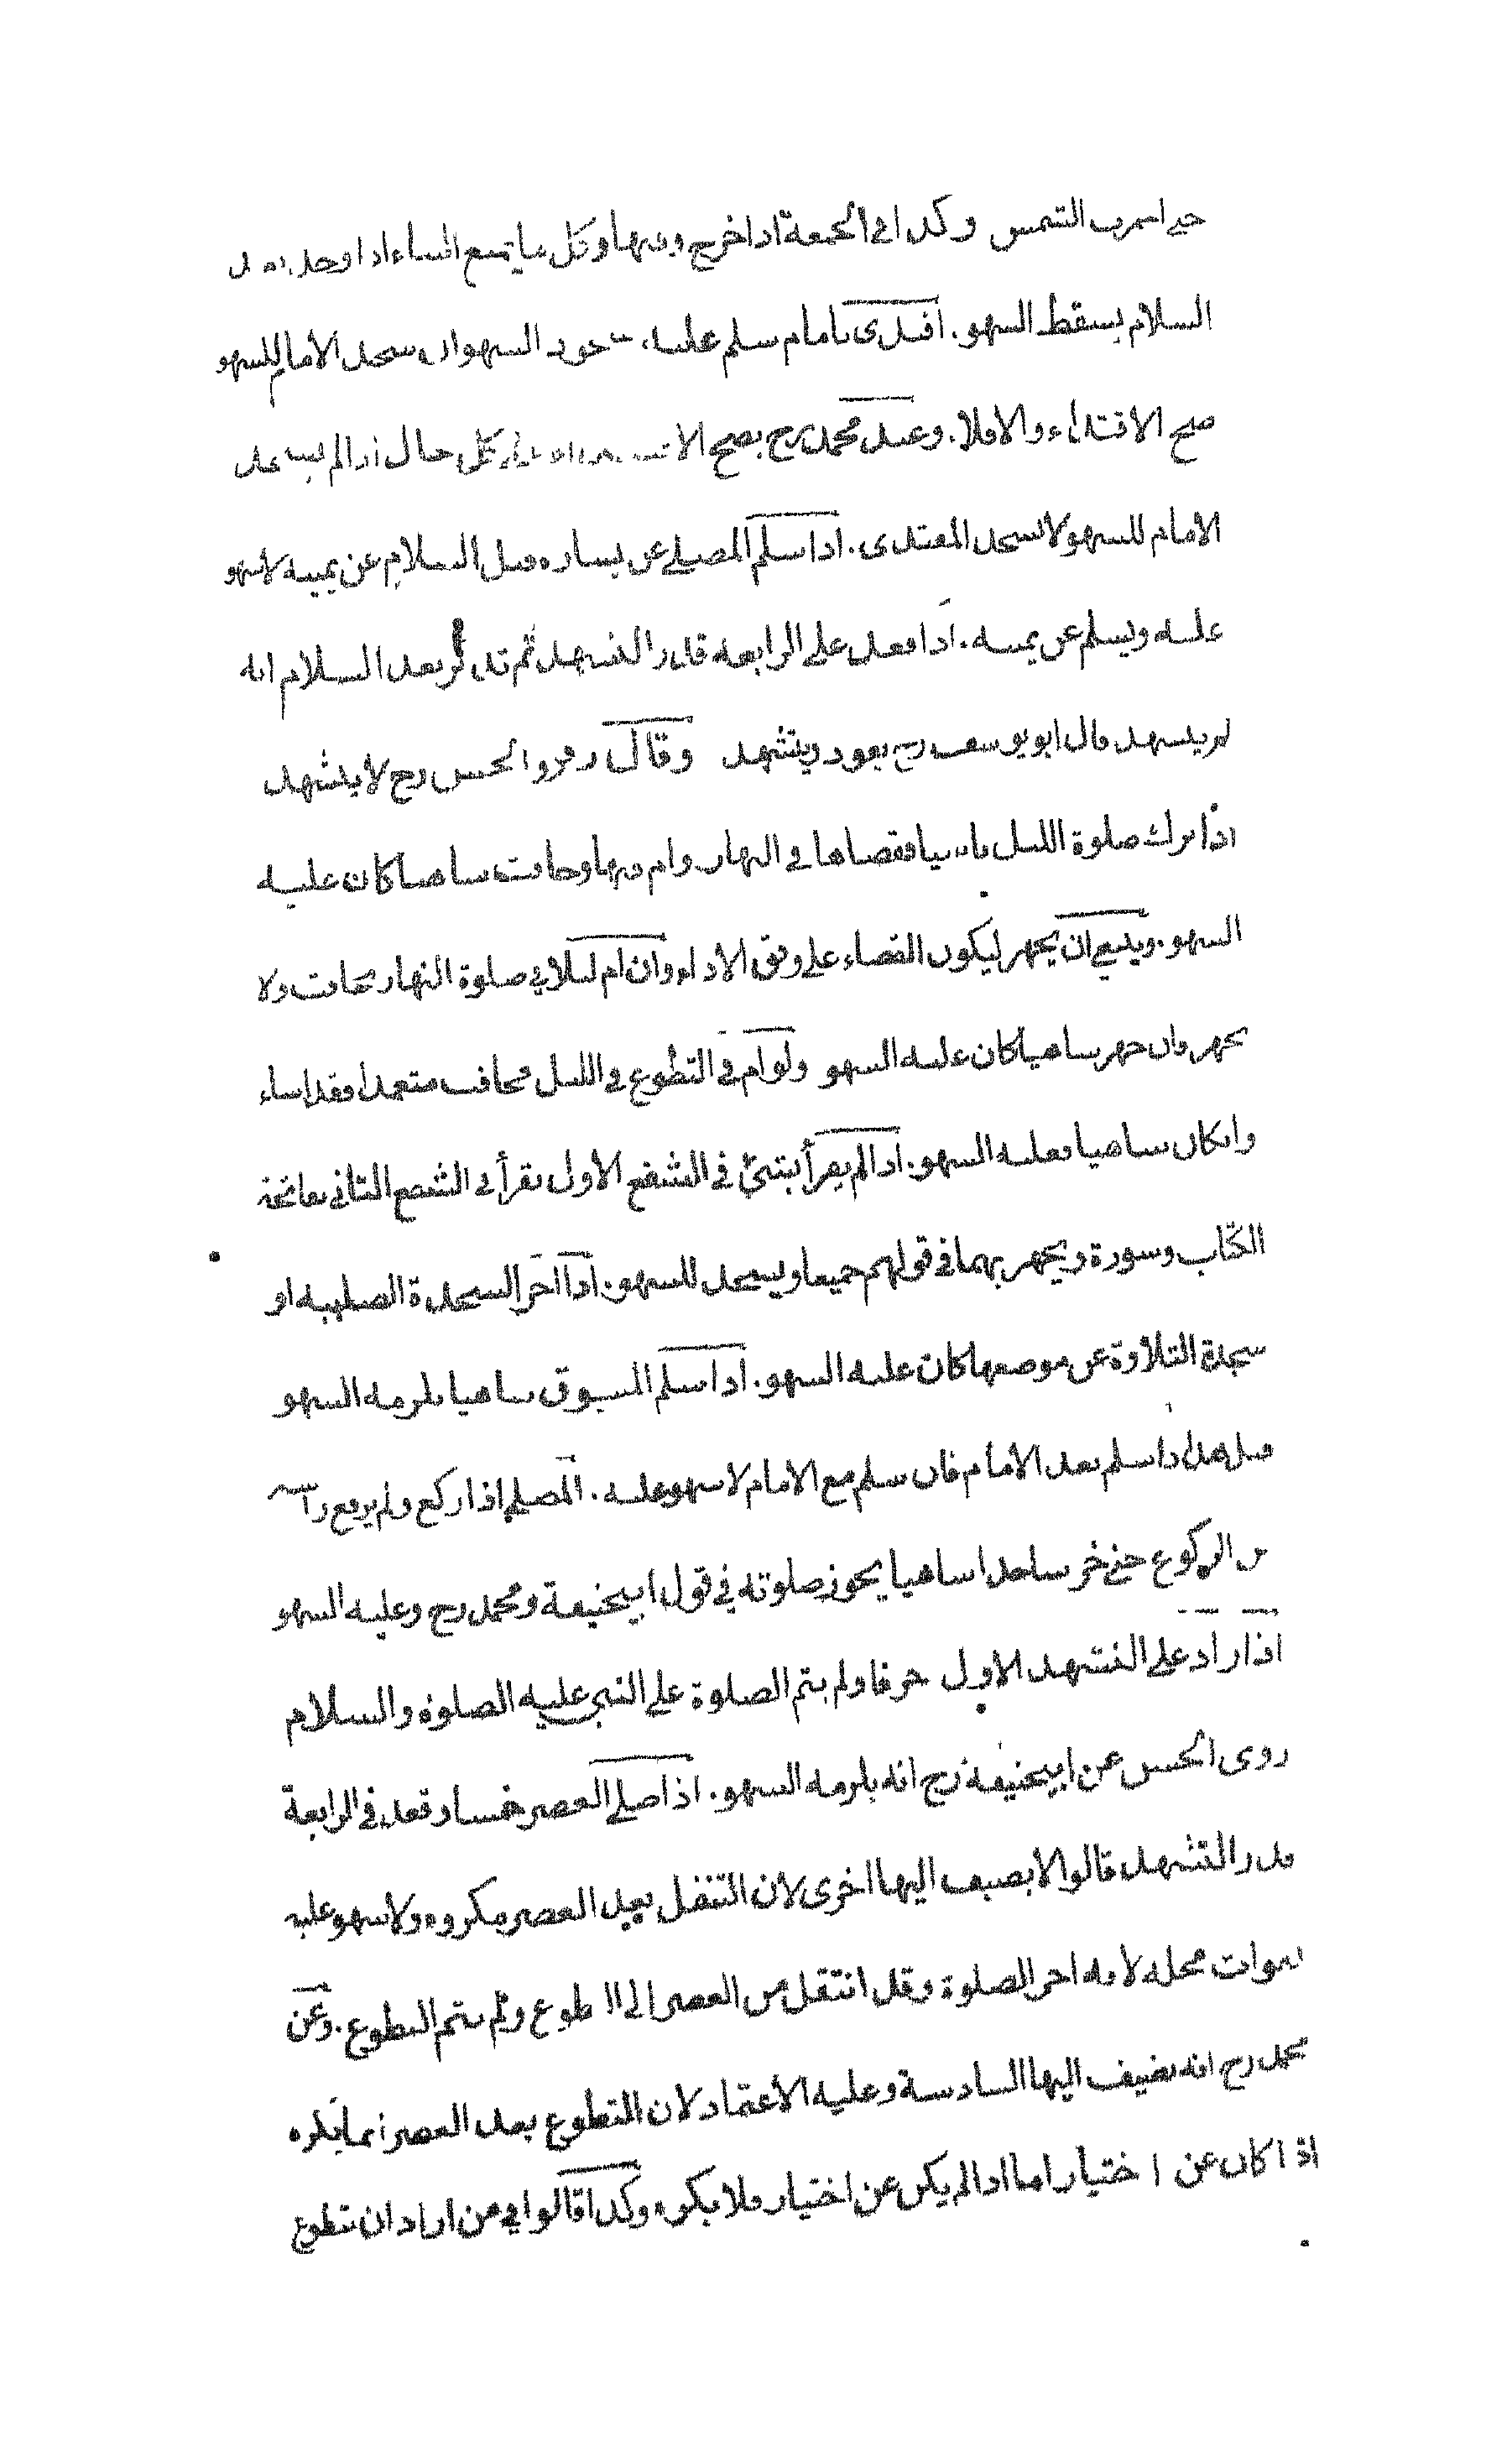 حتى احمرت الشمس وكذا في الجمعة اذا خرج وقتها وكل ما يمنع البناء اذا وجد بعد
السلام يسقط السهو. اقتدى بامام سلم عليه سجود السهو ان سجد الامام للسهو
صح الاقتداء والا فلا. وعند محمد رح يصح الاقتداء على كل حال اذا لم يسجد
الامام للسهو لا يسجد المقتدى. اذا سلم المصلي عن يساره قبل السلام عن يمينه لا سهو
عليه ويسلم عن يمينه. اذا قعد على الرابعة قدر التشهد ثم تذكر بعد السلام انه
لم يتشهد قال ابو يوسف رح يعود ويتشهد وقال زفر والحسن رح لا يتشهد
اذا ترك صلوة الليل ناسيا فقضاها في النهار وام فيها وخافت ساهيا كان عليه
السهو. وينبغي ان يجهر ليكون القضاء على وفق الاداء وان ام ليلا في صلوة النهار يخافت ولا
يجهر وان جهر ساهيا كان عليه السهو ولو ام في التطوع في الليل فخافت متعمدا فقد اساء
وانكان ساهيا فعليه السهو. اذا لم يقرأ بشئ في الشفع الاول يقرأ في الشفع الثاني بفاتحة
الكتاب وسورة ويجهر بهما في قولهم جميعا ويسجد للسهو. اذا اخر السجدة الصلبية او
سجدة التلاوة عن موضعها كان عليه السهو. اذا سلم المسبوق ساهيا يلزمه السهو
قيل هذا اذا سلم بعد الامام فان سلم مع الامام لا سهو عليه. المصلي اذا ركع ولم يرفع رأسه
من الركوع حتى خر ساجدا ساهيا يجوز صلوته في قول ابيحنيفة ومحمد رح وعليه السهو
اذا زاد على التشهد الاول حرفا ولم يتم الصلوة على النبي عليه الصلوة والسلام
روى الحسن عن ابيحنيفة رح انه يلزمه السهو. اذا صلى العصر خمسا وقعد في الرابعة
قدر التشهد قالوا لا يضيف اليها اخرى لان التنفل بعد العصر مكروه ولا سهو عليه
لفوات محله لانه اخر الصلوة وقد انتقل من العصر الى التطوع ولم يتم التطوع. وعن
محمد رح انه يضيف اليها السادسة وعليه الاعتماد لان التطوع بعد العصر انما يكره
اذا كان عن اختيار اما اذا لم يكن عن اختيار فلا يكره وكذا قالوا في من اراد ان يتطوع